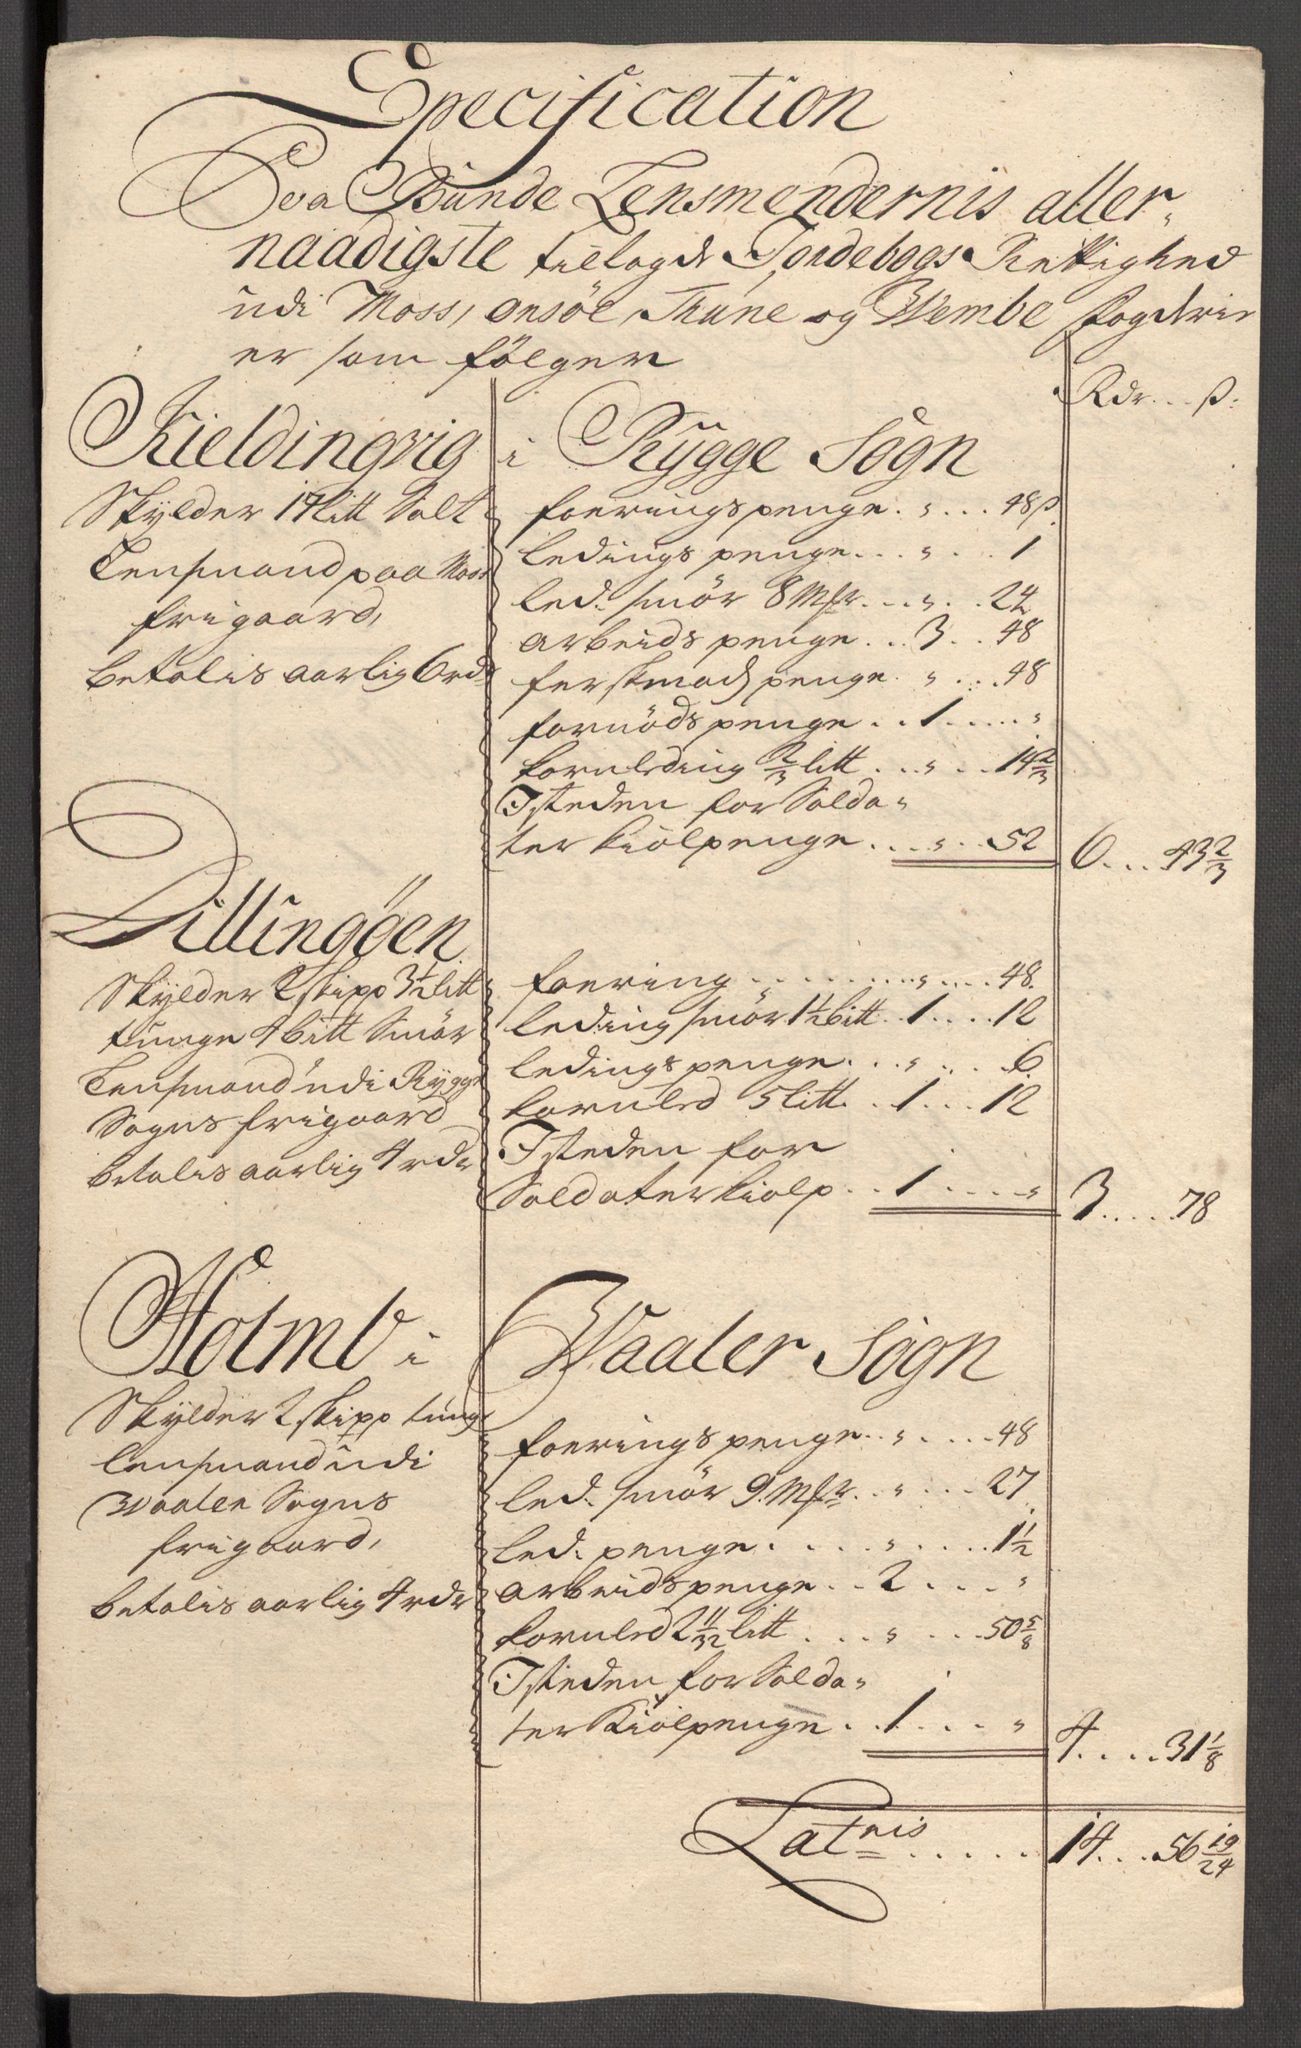 Specification
Hva Bunde Lensmendernis aller-
naadigste tillagde Jordebogs Rettighed
udi Moss, Onsöe, Thune og Wembe fogderie
er som fölger
Rdr ... ß.
Kieldingvig i Rygge Sogn
Skylder 17 litt Salt
Lensmand paa Moss
frigaard,
betalis aarlig 6 rdr
foeringspenge . " ... 48 ß
ledings penge ... " ... 1
led: smör 8 Mkr ... " .. 24
arbeids penge .. 3 .. 48
ferskmads penge . " ... 48
fornöds penge .. 1 ..... "
kornleding 2/3 litt ... " .. 14 2/3
Isteden for Solda-
ter kiolpenge .... " .. 52
6 ... 43 2/3
Dillingöen
Skylder 2 skipp 3 1/2 litt
tunge 4 bitt Smör
Lensmand udi Rygge
Sogns frigaard
betalis aarlig 4 rdr
foering ......... " .... 48
leding smör 1 1/2 bitt . 1 .... 12
ledingspenge ... " ... 6
kornled 5 litt .. 1 ... 12
Isteden for
Soldaterkiolp .. 1 .... "
3 ..... 78
Holmb i Waaler Sogn
Skylder 2 skipp tunge
lensmand udi
Waaler Sogns
frigaard,
betalis aarlig 4 rdr
foerings penge .. " .... 48
led: smör 9 Mkr .. " ... 27
led: penge ..... " ..... 1 1/2
arbeidspenge .. 2 .... "
kornled 2 11/32 litt .... " ... 50 5/8
Isteden for Solda-
ter Kiolpenge .. 1 ... "
4 .... 31 1/8
Latris ..... 14 ... 56 19/24